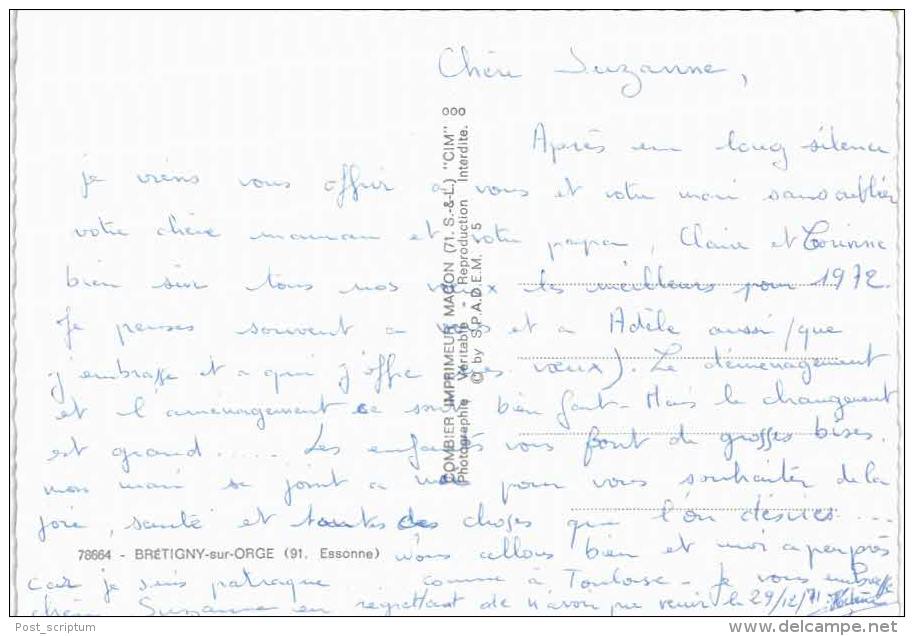 Chère Suzanne,
Après un long silence
je viens vous offrir a vous et votre mari sans oublier
votre chère maman et votre papa, Claire et Corinne
bien sûr tous nos vœux les meilleurs pour 1972.
Je penses souvent a vous et a Adèle aussi (que
j'embrasse et a qui j'offre mes vœux). Le déménagement
et l'amenagement ce sont bien fait - Mais le changement
est grand ..... Les enfants vous font de grosses bises.
mon mari se joint a moi pour vous souhaiter de la
joie, santé et toutes des choses que l'on désires ...
Nous allons bien et moi a peu près
car je suis patraque comme à Toulouse - Je vous embrasse
chère Suzanne en regrettant de n'avoir pu venir le 29/12/71
COMBIER IMPRIMEUR MACON (71. S.-&-L.) "CIM"
Photographie Véritable - Reproduction Interdite.
© by S.P.A.D.E.M. 5
78664 - BRÉTIGNY-sur-ORGE (91. Essonne)
Post_scriptum
delcampe.net